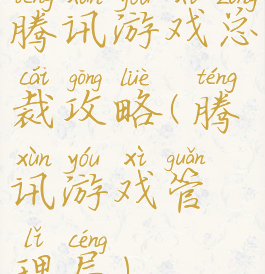 téng xùn yóu xì zǒng
腾讯游戏总
cái gōng lüè téng
裁攻略(腾
xùn yóu xì guǎn
讯游戏管
lǐ céng
理层)